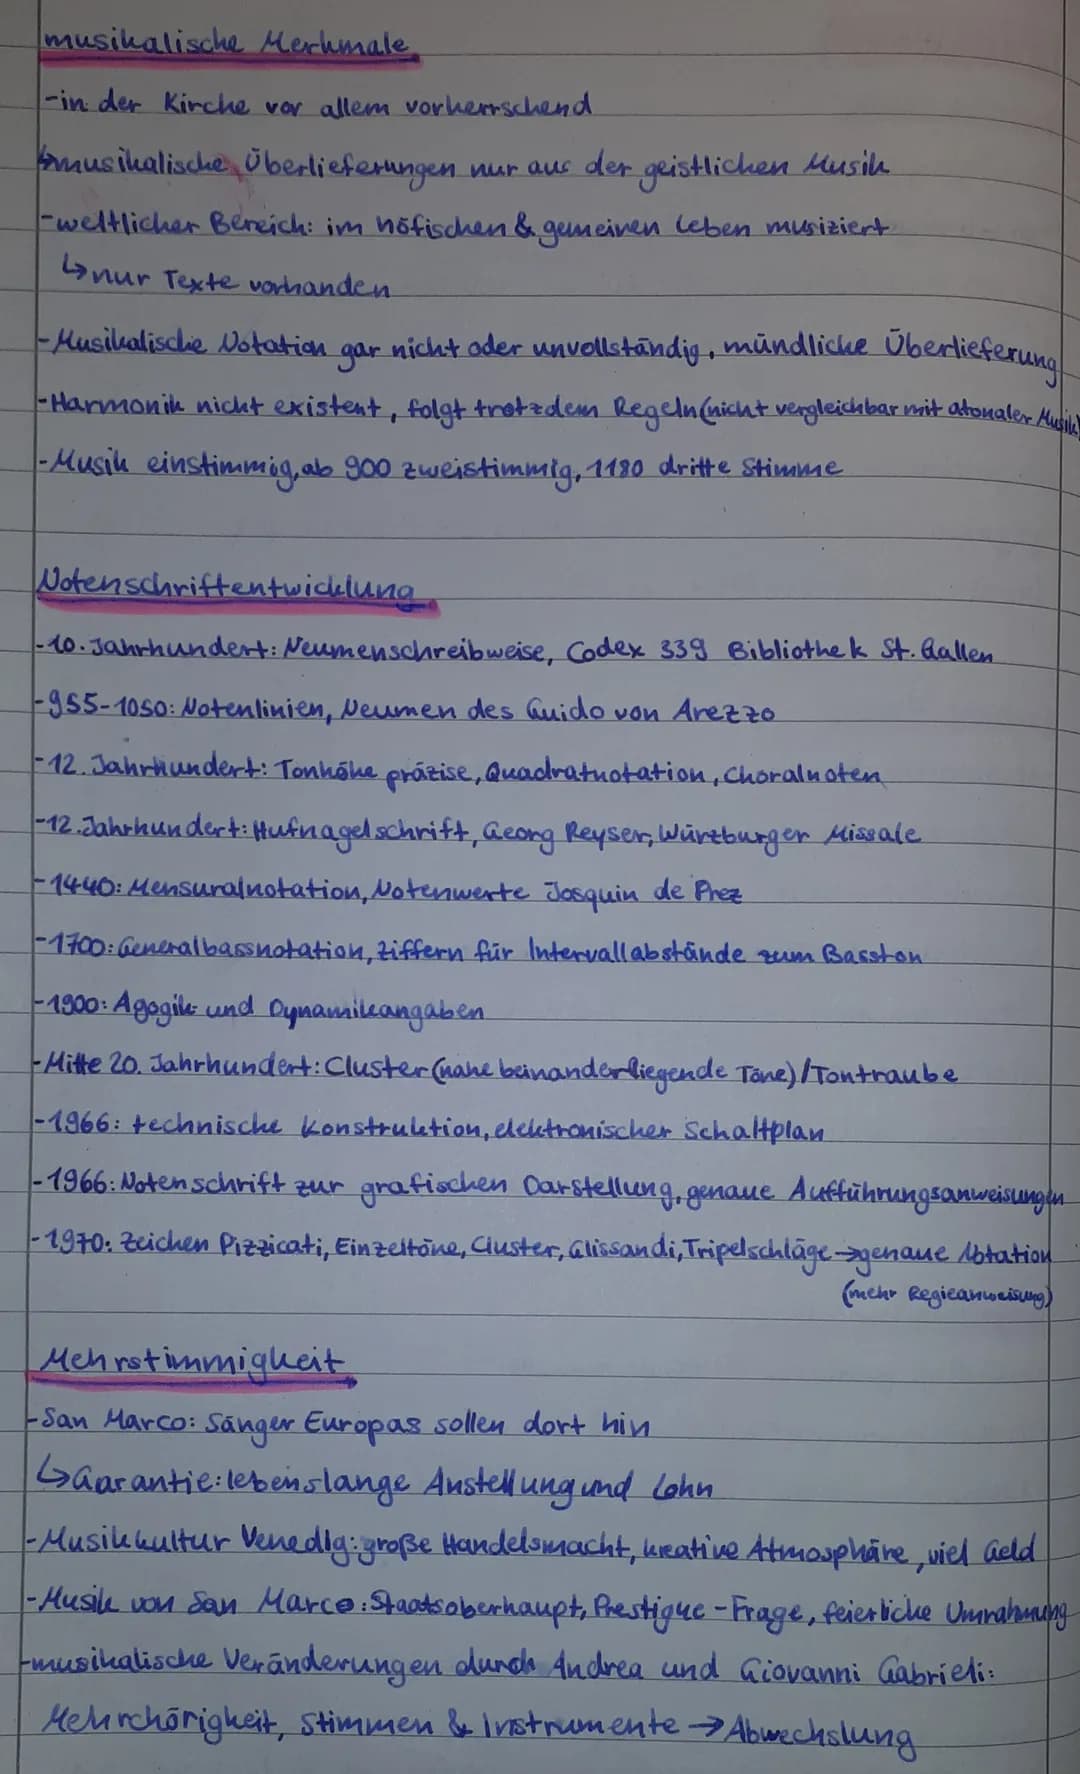 musikalische Merkmale
-in der Kirche vor allem vorherrschend
↳musikalische Überlieferungen nur aus der geistlichen Musik
-weltlicher Bereich: im höfischen & gemeinen Leben musiziert
↳nur Texte vorhanden
-Musikalische Notation gar nicht oder unvollständig, mündliche Überlieferung
-Harmonik nicht existent, folgt trotzdem Regeln (nicht vergleichbar mit atonaler Musik)
-Musik einstimmig, ab 900 zweistimmig, 1180 dritte Stimme
Notenschriftentwicklung
-10. Jahrhundert: Neumenschreibweise, Codex 339 Bibliothek St. Gallen
-955-1050: Notenlinien, Neumen des Guido von Arezzo
-12. Jahrhundert: Tonhöhe präzise, Quadratnotation, Choralnoten
-12. Jahrhundert: Hufnagelschrift, Georg Reyser, Würzburger Missale
-1440: Mensuralnotation, Notenwerte Josquin de Prez
-1700: Generalbassnotation, Ziffern für Intervallabstände zum Basston
-1900: Agogik und Dynamikangaben
-Mitte 20. Jahrhundert: Cluster (nahe beinanderliegende Töne)/Tontraube
-1966: technische Konstruktion, elektronischer Schaltplan
-1966: Notenschrift zur grafischen Darstellung, genaue Aufführungsanweisungen
-1970: Zeichen Pizzicati, Einzeltöne, Cluster, Glissandi, Tripelschläge →genaue Notation
(mehr Regieanweisung)
Mehrstimmigkeit
-San Marco: Sänger Europas sollen dort hin
↳Garantie: lebenslange Anstellung und Lohn
-Musikkultur Venedig: große Handelsmacht, kreative Atmosphäre, viel Geld
-Musik von San Marco: Staatsoberhaupt, Prestigue-Frage, feierliche Umrahmung
-musikalische Veränderungen durch Andrea und Giovanni Gabrieli:
Mehrchörigkeit, Stimmen & Instrumente → Abwechslung